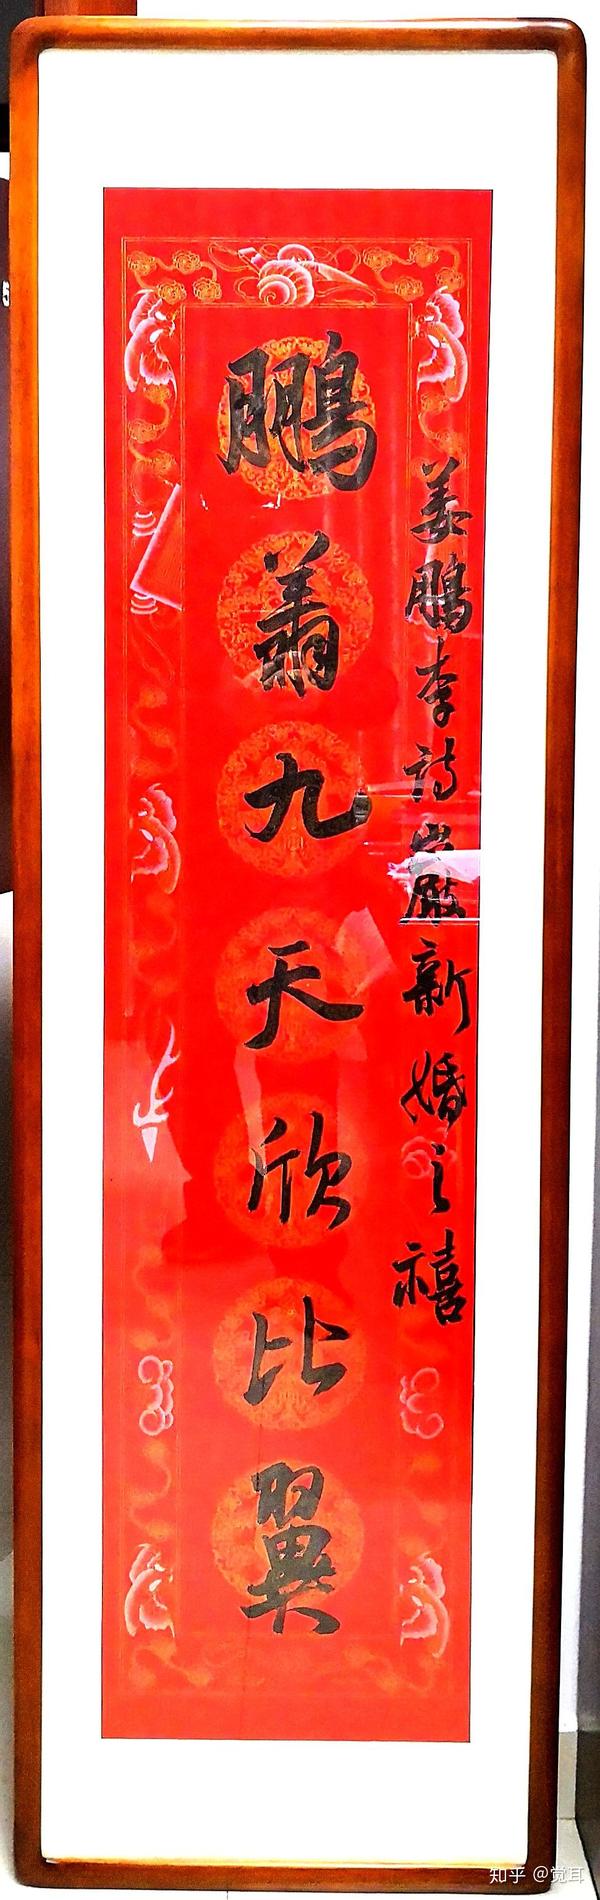 姜鵬李詩巖新婚之禧
鵬翥九天欣比翼
知乎 @觉耳
5